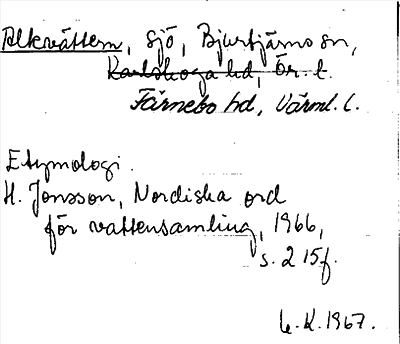 Alkvättern, sjö, Bjurtjärns sn,
Karlskoga hd, Ör. l.
Färnebo hd, Värml. l.
Etymologi.
H. Jonsson, Nordiska ord
för vattensamling, 1966,
s. 215f.
L.K. 1967.